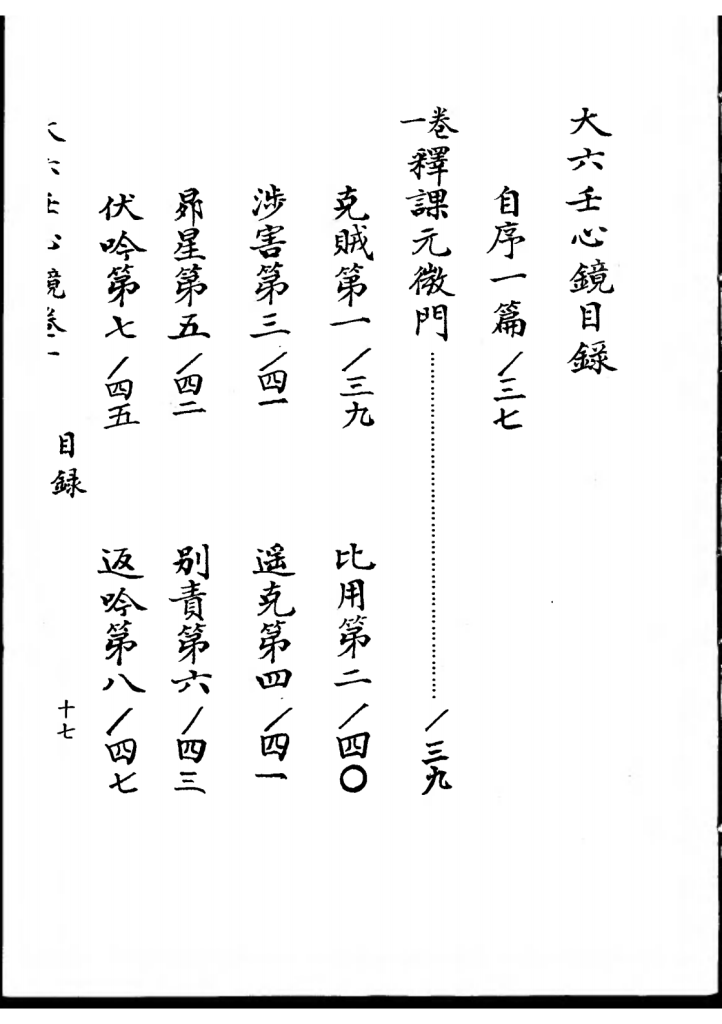 大六壬心鏡目録
自序一篇／三七
卷一 釋課元微門……／三九
克賊第一／三九
比用第二／四〇
涉害第三／四一
遥克第四／四一
昴星第五／四二
别責第六／四三
伏吟第七／四五
返吟第八／四七
大六壬心鏡卷一
目録
十七